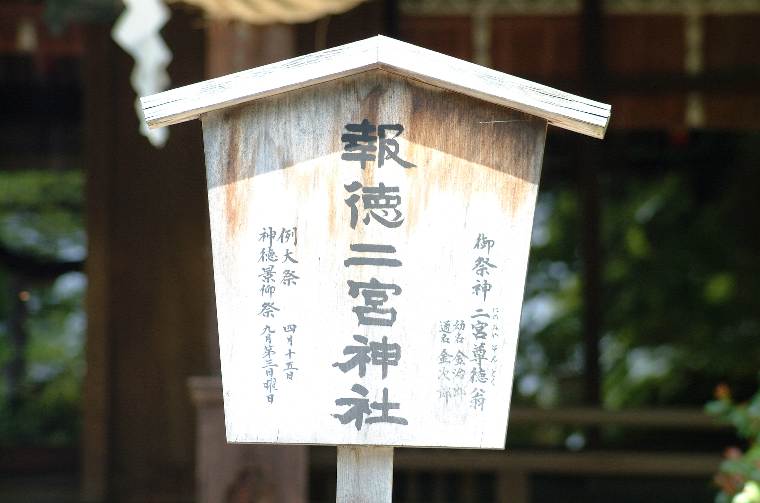 御祭神 二宮尊徳翁
にのみや そんとく
幼名 金治郎
通名 金次郎
報徳二宮神社
例大祭 四月十五日
神徳景仰祭 九月第三日曜日